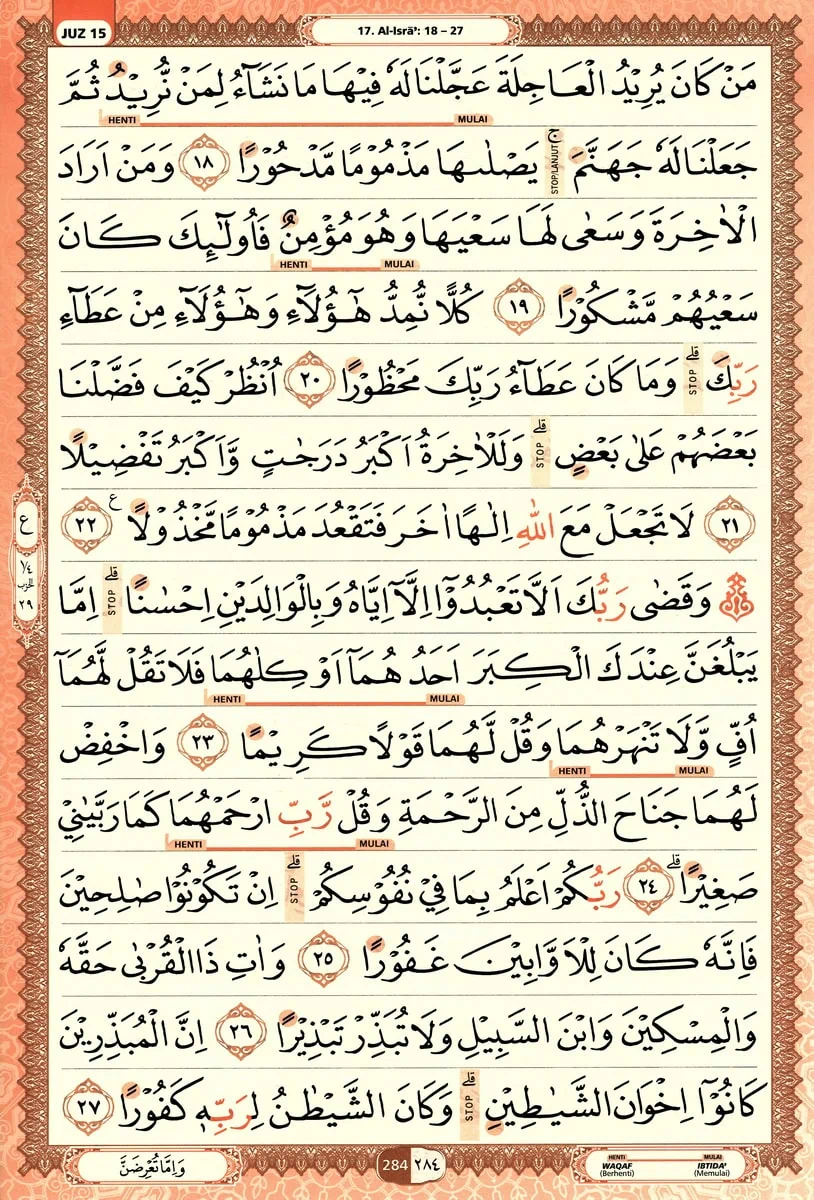 JUZ 15
17. Al-Isrāʾ: 18 – 27
مَنْ كَانَ يُرِيْدُ الْعَاجِلَةَ عَجَّلْنَا لَهٗ فِيْهَا مَا نَشَاۤءُ لِمَنْ نُّرِيْدُ ثُمَّ
HENTI MULAI
جَعَلْنَا لَهٗ جَهَنَّمَۚ يَصْلٰىهَا مَذْمُوْمًا مَّدْحُوْرًا ١٨ وَمَنْ اَرَادَ
STOP/LANJUT
الْاٰخِرَةَ وَسَعٰى لَهَا سَعْيَهَا وَهُوَ مُؤْمِنٌ فَاُولٰۤىِٕكَ كَانَ
HENTI MULAI
سَعْيُهُمْ مَّشْكُوْرًا ١٩ كُلًّا نُّمِدُّ هٰٓؤُلَاۤءِ وَهٰٓؤُلَاۤءِ مِنْ عَطَاۤءِ
رَبِّكَۗ وَمَا كَانَ عَطَاۤءُ رَبِّكَ مَحْظُوْرًا ٢٠ اُنْظُرْ كَيْفَ فَضَّلْنَا
STOP
بَعْضَهُمْ عَلٰى بَعْضٍۗ وَلَلْاٰخِرَةُ اَكْبَرُ دَرَجٰتٍ وَّاَكْبَرُ تَفْضِيْلًا
STOP
٢١ لَا تَجْعَلْ مَعَ اللّٰهِ اِلٰهًا اٰخَرَ فَتَقْعُدَ مَذْمُوْمًا مَّخْذُوْلًا ࣖ ٢٢
۞ وَقَضٰى رَبُّكَ اَلَّا تَعْبُدُوْٓا اِلَّآ اِيَّاهُ وَبِالْوَالِدَيْنِ اِحْسٰنًاۗ اِمَّا
STOP
يَبْلُغَنَّ عِنْدَكَ الْكِبَرَ اَحَدُهُمَآ اَوْ كِلٰهُمَا فَلَا تَقُلْ لَّهُمَآ
HENTI MULAI
اُفٍّ وَّلَا تَنْهَرْهُمَا وَقُلْ لَّهُمَا قَوْلًا كَرِيْمًا ٢٣ وَاخْفِضْ
HENTI MULAI
لَهُمَا جَنَاحَ الذُّلِّ مِنَ الرَّحْمَةِ وَقُلْ رَّبِّ ارْحَمْهُمَا كَمَا رَبَّيٰنِيْ
HENTI MULAI
صَغِيْرًاۗ ٢٤ رَبُّكُمْ اَعْلَمُ بِمَا فِيْ نُفُوْسِكُمْۗ اِنْ تَكُوْنُوْا صٰلِحِيْنَ
STOP
فَاِنَّهٗ كَانَ لِلْاَوَّابِيْنَ غَفُوْرًا ٢٥ وَاٰتِ ذَا الْقُرْبٰى حَقَّهٗ
وَالْمِسْكِيْنَ وَابْنَ السَّبِيْلِ وَلَا تُبَذِّرْ تَبْذِيْرًا ٢٦ اِنَّ الْمُبَذِّرِيْنَ
كَانُوْٓا اِخْوَانَ الشَّيٰطِيْنِۗ وَكَانَ الشَّيْطٰنُ لِرَبِّهٖ كَفُوْرًا ٢٧
STOP
ع
١/٤
الحزب
٢٩
وَاِمَّا تُعْرِضَنَّ
284 ٢٨٤
HENTI MULAI
WAQAF IBTIDA'
(Berhenti) (Memulai)